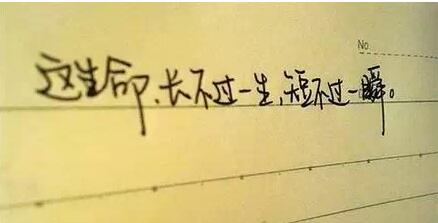 No.
这生命、长不过一生,短不过一瞬。